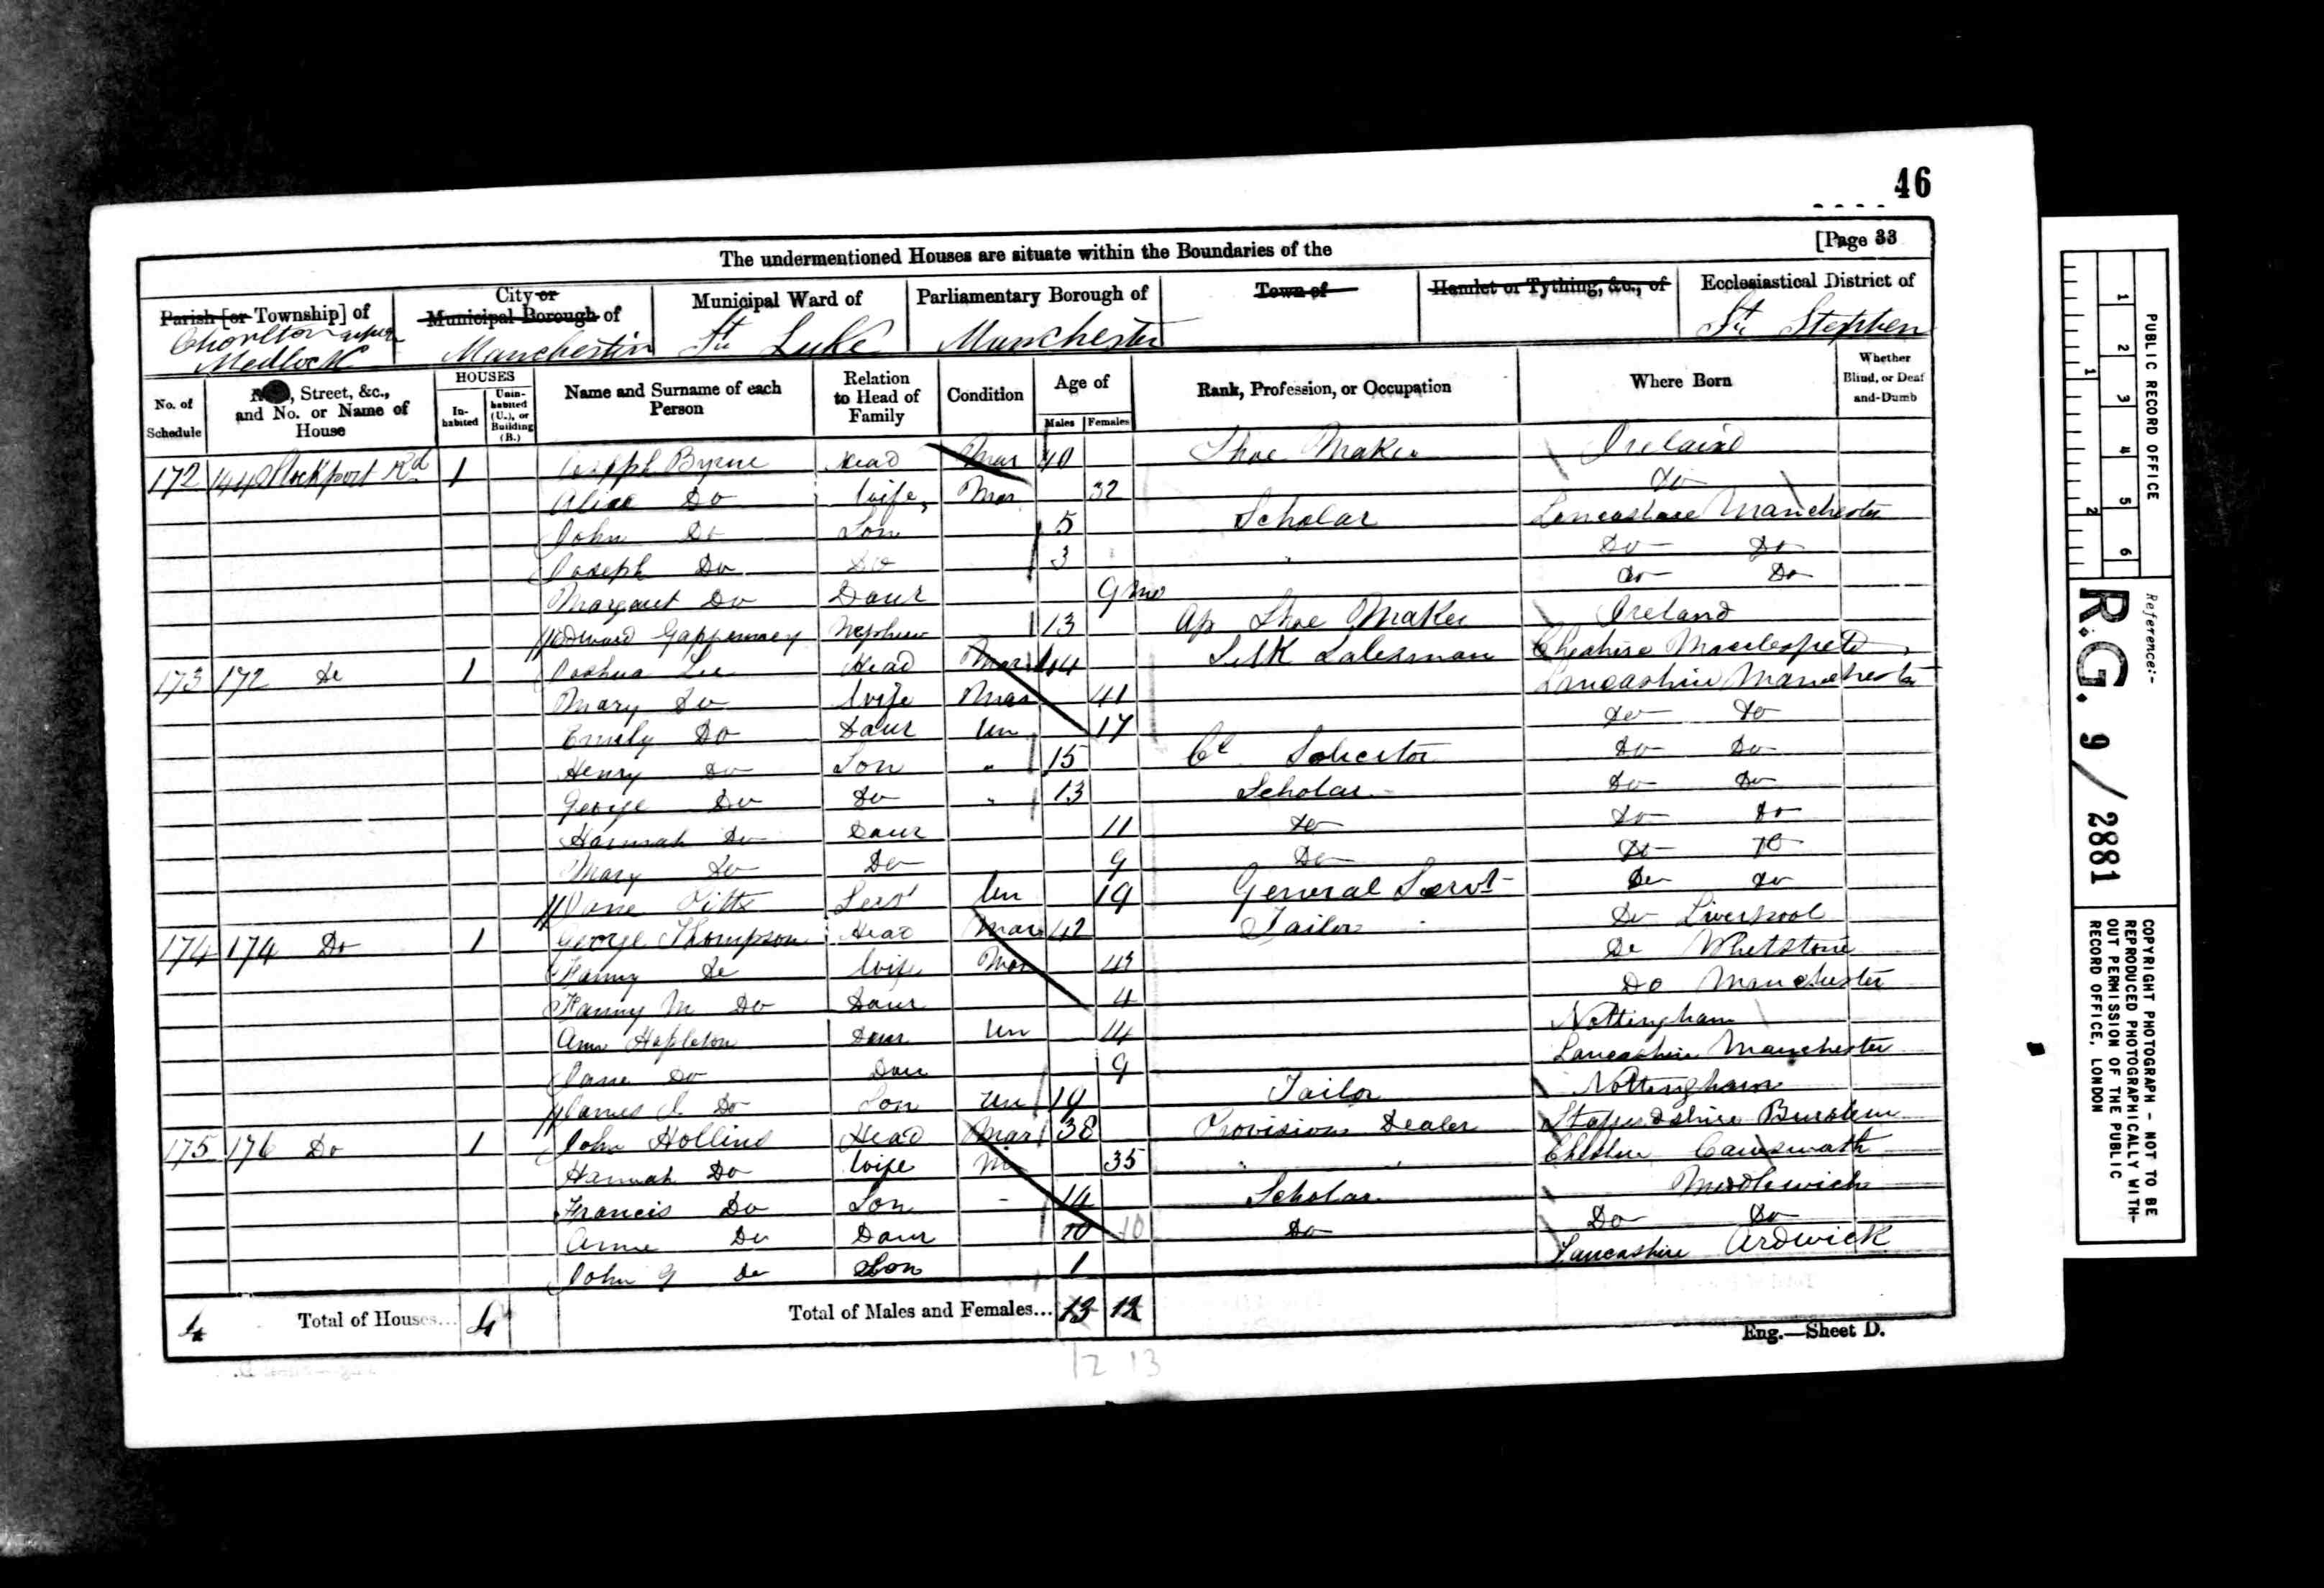 46
The undermentioned Houses are situate within the Boundaries of the [Page 33
Parish [or Township] of City or Municipal Borough of Municipal Ward of Parliamentary Borough of Town of Hamlet or Tything, &c., of Ecclesiastical District of
Chorlton upon Medlock Manchester St. Luke Manchester St. Stephen
No. of Schedule Street, &c., and No. or Name of House HOUSES In-habited Unin-habited (U.), or Building (B.) Name and Surname of each Person Relation to Head of Family Condition Age of Males Females Rank, Profession, or Occupation Where Born Whether Blind, or Deaf and-Dumb
172 144 Stockport Rd 1 Joseph Byrne Head Mar 40 Shoe Maker Ireland
Alice Do Wife Mar 32 Do
John Do Son 5 Scholar Lancashire Manchester
Joseph Do Do 3 Do Do
Margaret Do Daur 9 mo Do Do
Edward Nephew 13 Ap Shoe Maker Ireland
173 172 Do 1 Joshua Lee Head Mar 44 Silk Salesman Cheshire Macclesfield
Mary Do Wife Mar 41 Lancashire Manchester
Emily Do Daur Un 17 Do Do
Henry Do Son " 15 Cl Solicitor Do Do
George Do Do " 13 Scholar Do Do
Hannah Do Daur 11 Do Do Do
Mary Do Do 9 Do Do Do
Jane Pitts Servt Un 19 General Servt Do Do
174 174 Do 1 George Thompson Head Mar 42 Tailor Do Liverpool
Fanny Do Wife Mar Do Whetstone
Fanny M Do Daur 4 Do Manchester
Ann Hapleton Daur Un 14 Nottingham
Jane Do Daur 9 Lancashire Manchester
James J. Do Son Un 19 Tailor Nottingham
175 176 Do 1 John Hollins Head Mar 38 Provision Dealer Staffordshire Burslem
Hannah Do Wife M 35 Cheshire
Francis Do Son - 14 Scholar Middlewich
Anne Do Daur 10 10 Do Do Do
John G Do Son 1 Lancashire Ardwick
4 Total of Houses... 4 Total of Males and Females... 13 12
12 13
Eng.—Sheet D.
PUBLIC RECORD OFFICE
1 2 3 4 5 6
1 2
Reference:-
R.G. 9/2881
COPYRIGHT PHOTOGRAPH - NOT TO BE
REPRODUCED PHOTOGRAPHICALLY WITH-
OUT PERMISSION OF THE PUBLIC
RECORD OFFICE, LONDON